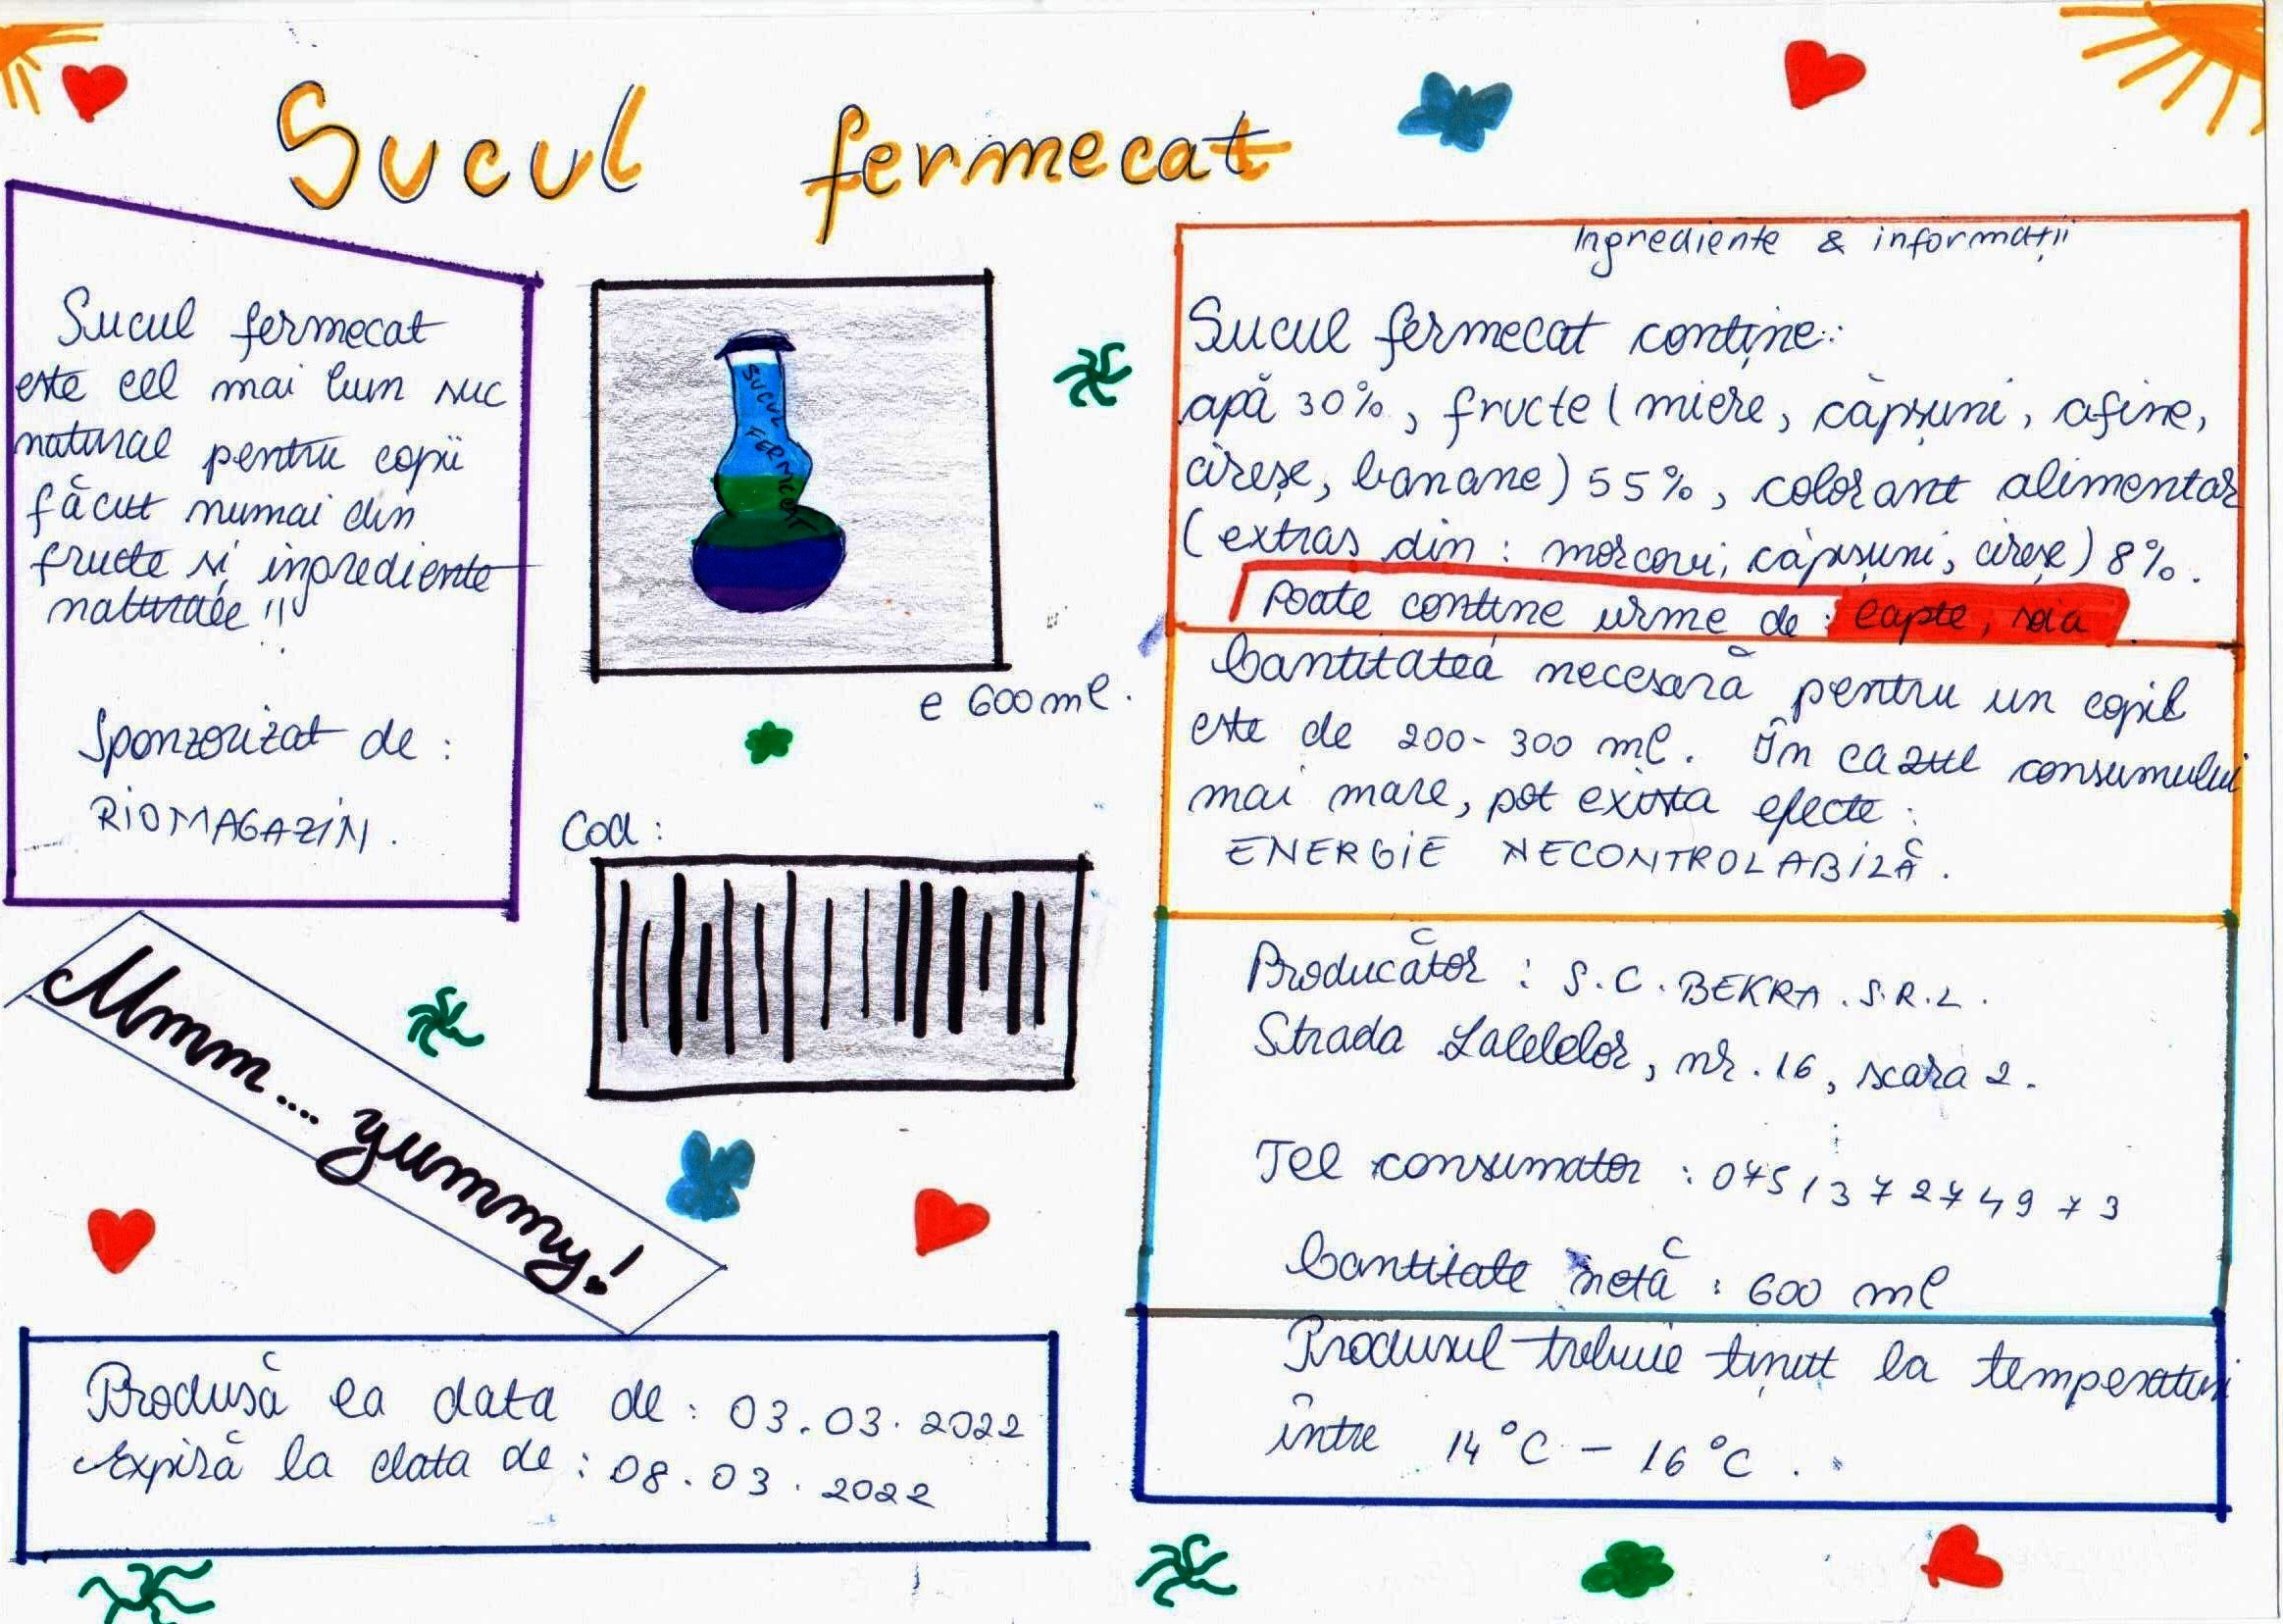 Sucul fermecat
Sucul fermecat
este cel mai bun suc
natural pentru copii
făcut numai din
fructe și ingrediente
naturale!!
Sponzorizat de:
BIOMAGAZIN.
SUCUL FERMECAT
e 600 ml.
Cod:
Mmm.... yummy!
Produsă la data de: 03.03.2022
Expiră la data de: 08.03.2022
Ingrediente & informații
Sucul fermecat conține:
apă 30%, fructe (miere, căpșuni, afine,
cireșe, banane) 55%, colorant alimentar
(extras din: morcovi, căpșuni, cireșe) 8%.
Poate conține urme de: lapte, soia.
Cantitatea necesară pentru un copil
este de 200-300 ml. În cazul consumului
mai mare, pot exista efecte:
ENERGIE NECONTROLABILĂ.
Producător: S.C. BEKRA. S.R.L.
Strada Lalelelor, nr. 16, scara 2.
Tel consumator: 075137274973
Cantitate netă: 600 ml
Produsul trebuie ținut la temperaturi
între 14°C - 16°C.